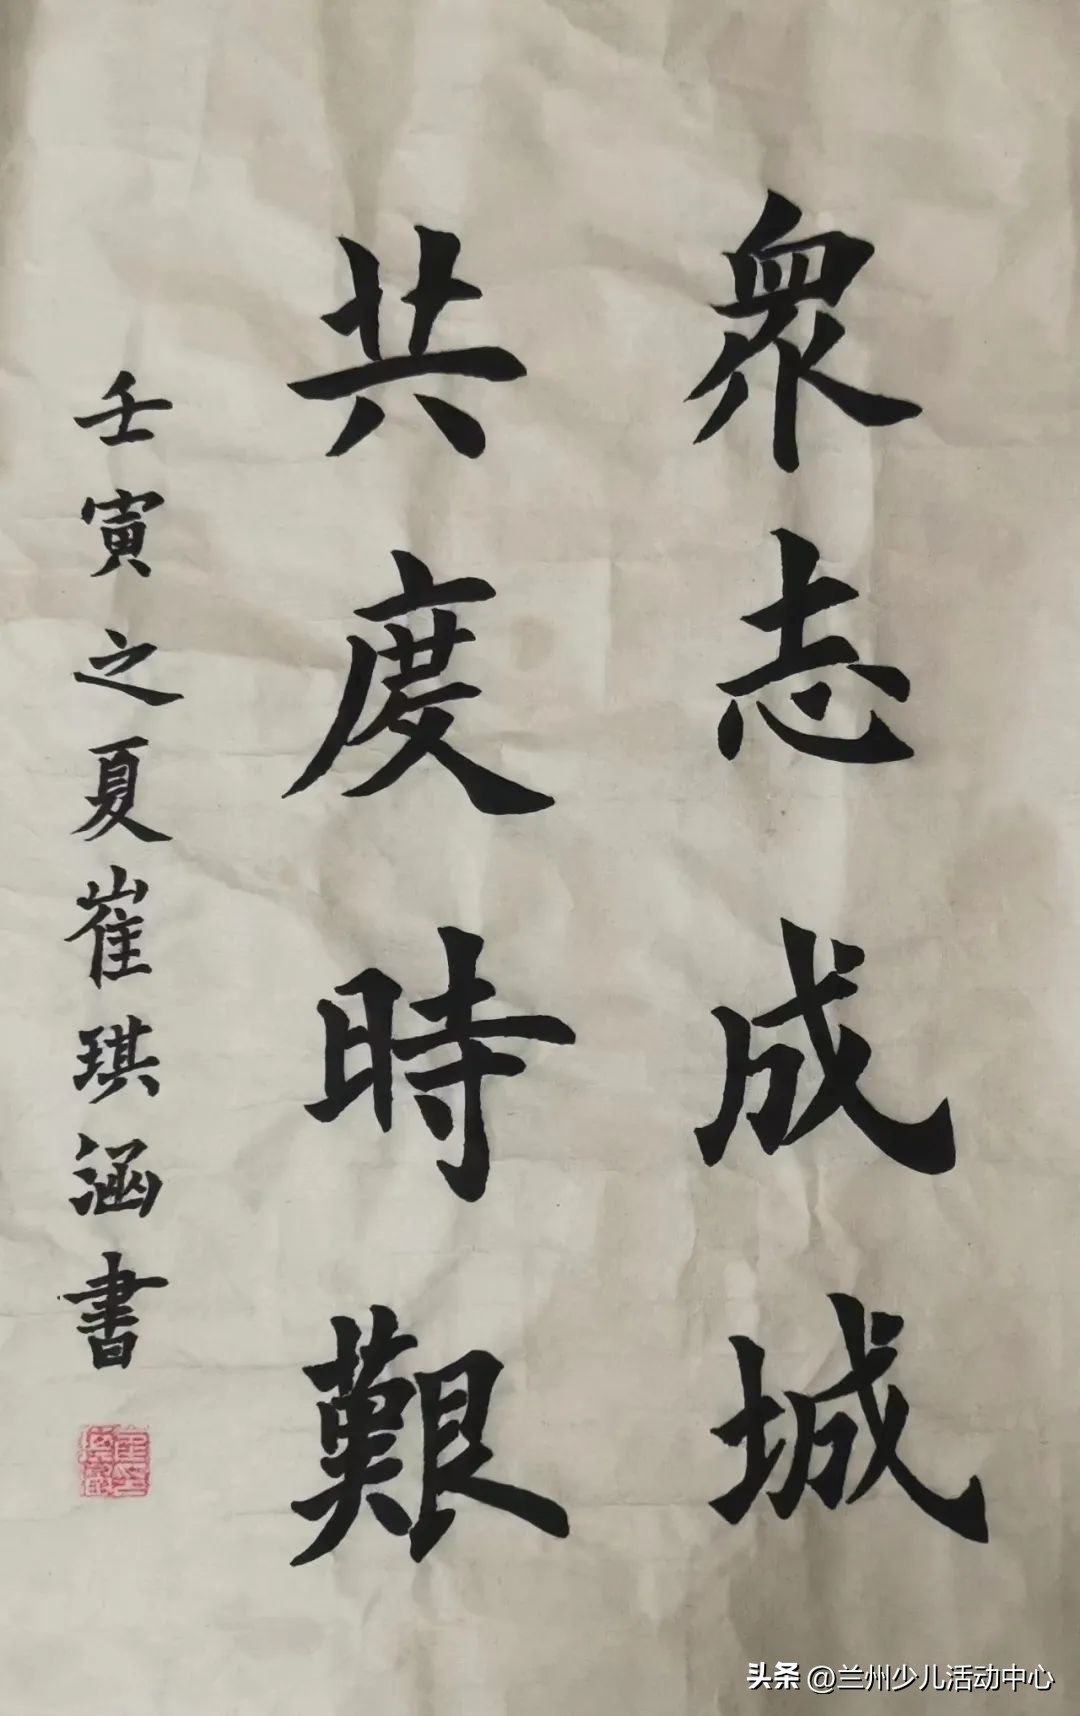 衆志成城
共度時艱
壬寅之夏崔琪涵書
头条 @兰州少儿活动中心